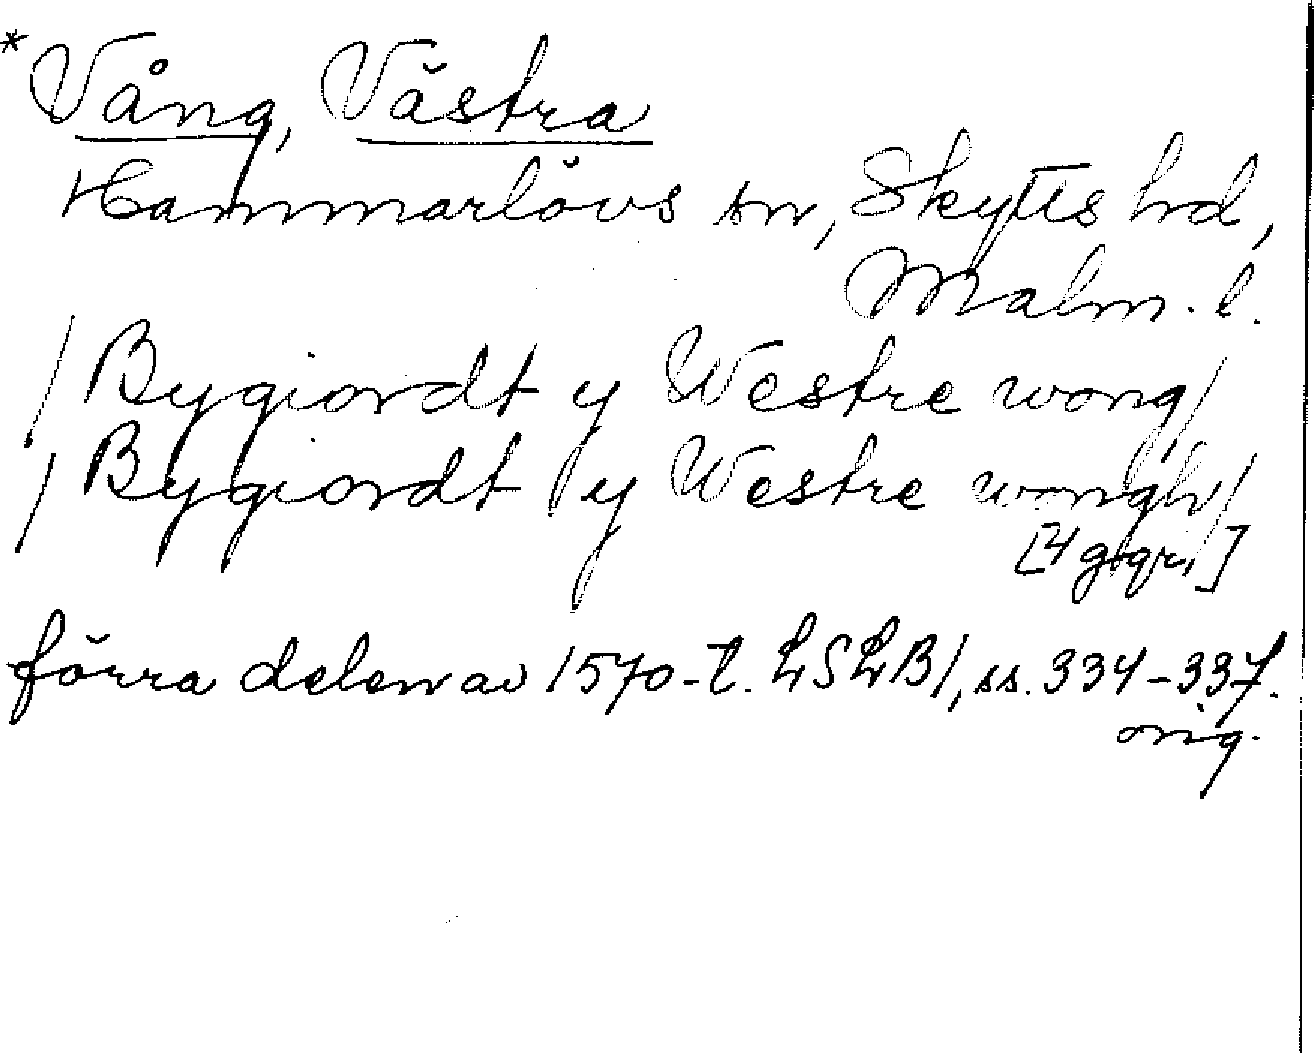 *Vång, Västra
Hammarlövs sn, Skytts hd,
Malm. l.
/ Bygiordt y Westre wong /
/ Bygiordt y Westre wongh /
[4 ggr.]
förra delen av 1570-t. LSLB1, ss. 334-337.
orig.